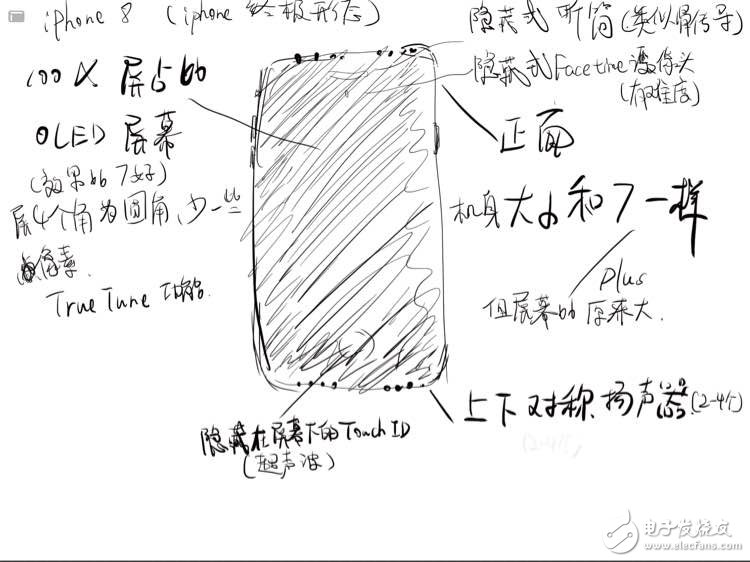 iphone 8 (iphone 终极形态)
100% 屏占比
OLED 屏幕
(效果比7好)
屏4个角为圆角,少一些
像素.
True Tune 功能.
隐藏式 听筒(类似骨传导)
隐藏式 Facetime 摄像头
正面
机身大小和7一样
plus
但屏幕比原来大.
上下对称扬声器(2-4个)
隐藏在屏幕下的Touch ID
(超声波)
电子发烧友
www.elecfans.com